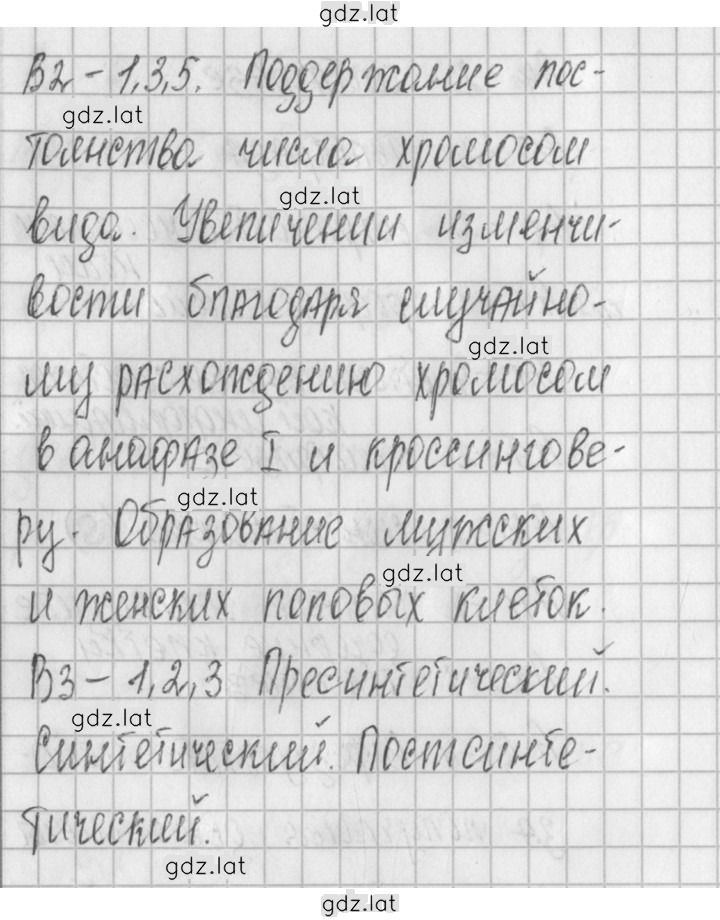 gdz.lat
В2 – 1,3,5. Поддержание пос-
gdz.lat
тоянства числа хромосом
gdz.lat
вида. Увеличении изменчи-
вости благодаря случайно-
gdz.lat
му расхождению хромосом
в анафазе I и кроссингове-
gdz.lat
ру. Образование мужских
gdz.lat
и женских половых клеток.
В3 – 1,2,3 Пресинтетический.
gdz.lat
Синтетический. Постсинте-
тический.
gdz.lat
gdz.lat